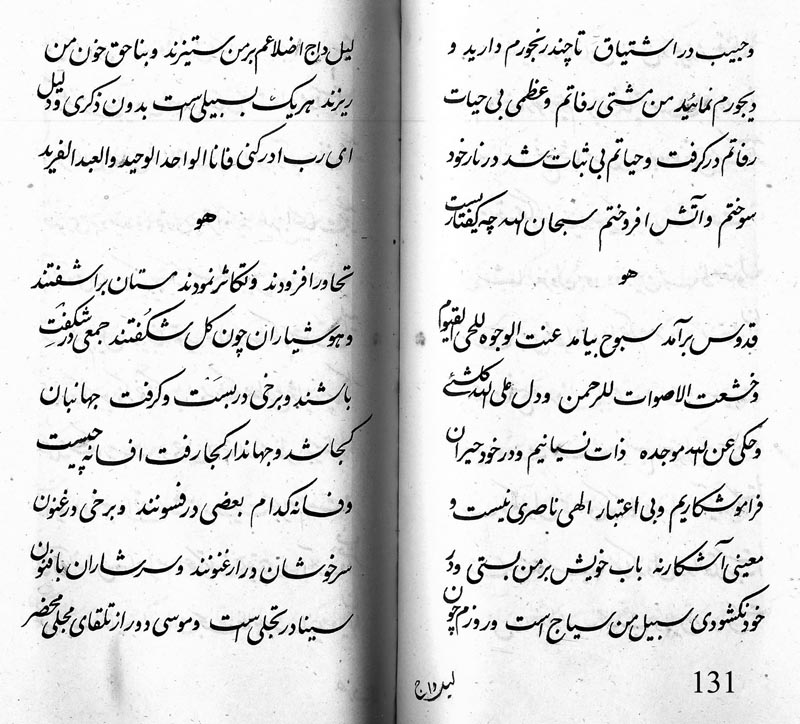 وجیب در اشتیاق تا چند رنجورم دارید و
دیجورم نمائید من مشتی رفاتم و عظمی بی حیات
رفاتم در گرفت و حیاتم بی ثبات شد در نار خود
سوختم و آتش افروختم سبحان الله چه گفتاریست
هو
قدوس برآمد سبوح بیامد عنت الوجوه للحی القیوم
و خشعت الاصوات للرحمن ودل علی الله کلشئ
و حکی عن الله موجده ذات نسیانیم و در خود حیران
فراموشکاریم و بی اعتبار الهی ناصری نیست و
معینی آشکار نه باب خویش بر من بستی و در
خود نگشودی سبیل من سیاج است و روزم چون
لیل داج
131
لیل داج اضلاعم بر من ستیزند و بناحق خون من
ریزند هر یک بسبیلی است بدون ذکری و دلیل
ای رب ادرکنی فانا الواحد الوحید والعبد الفرید
هو
تجاور افزودند و تکاثر نمودند مستان براشفتند
و هوشیاران چون گل شگفتند جمعی در شگفت
باشند و برخی در بست و گرفت جهانبان
کجا شد و جهاندار کجا رفت افسانه چیست
و فسانه کدام بعضی در فسونند و برخی در غنون
سرخوشان در ارغنونند و سرشاران با فنون
سینا در تجلی است و موسی دور از تلقای مجلی محضر